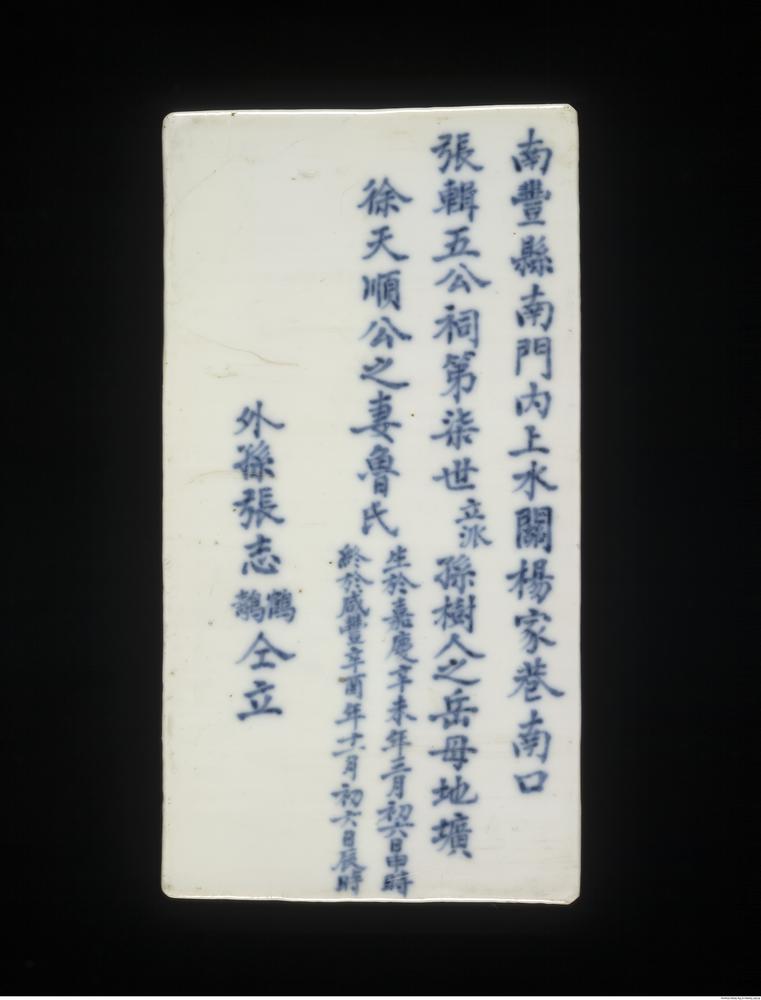 南豐縣南門內上水關楊家巷南口
張輯五公祠第柒世立派孫樹人之岳母地壙
徐天順公之妻魯氏
生於嘉慶辛未年三月初六日申時
終於咸豐辛酉年十一月初六日辰時
外孫張志鶴鵲仝立